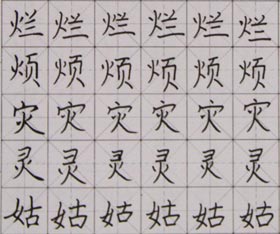 烂烂烂烂烂烂
烦烦烦烦烦烦
灾灾灾灾灾灾
灵灵灵灵灵灵
姑姑姑姑姑姑